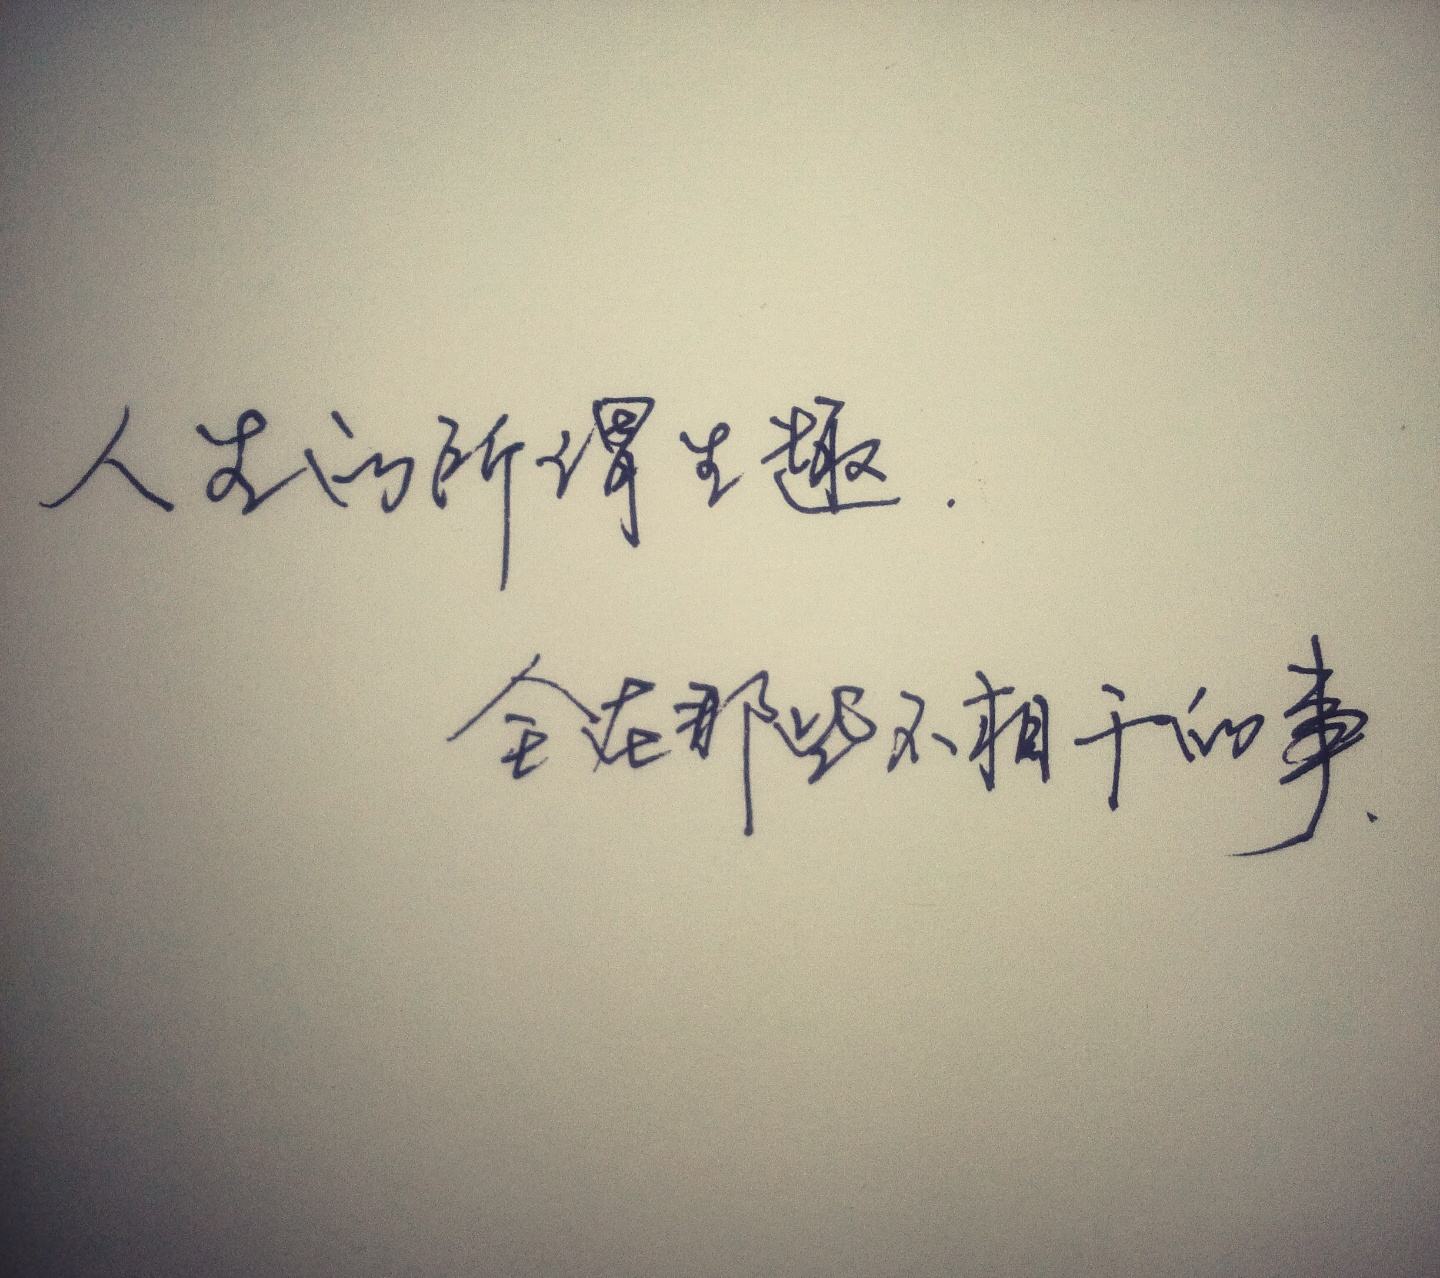 人生的所得生趣.
全在那些不相干的事.